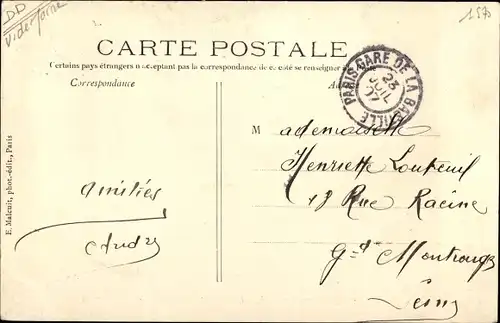 DD
1575
CARTE POSTALE
Certains pays étrangers n'acceptant pas la correspondance de ce côté se renseigner
Correspondance
PARIS-GARE DE LA BASTILLE
23
JUIL
07
Mademoiselle
Henriette Louteuil
18 Rue Racine
Gd Montrouge
Seine
amitiés
André
E. Malcuit, phot.-édit., Paris